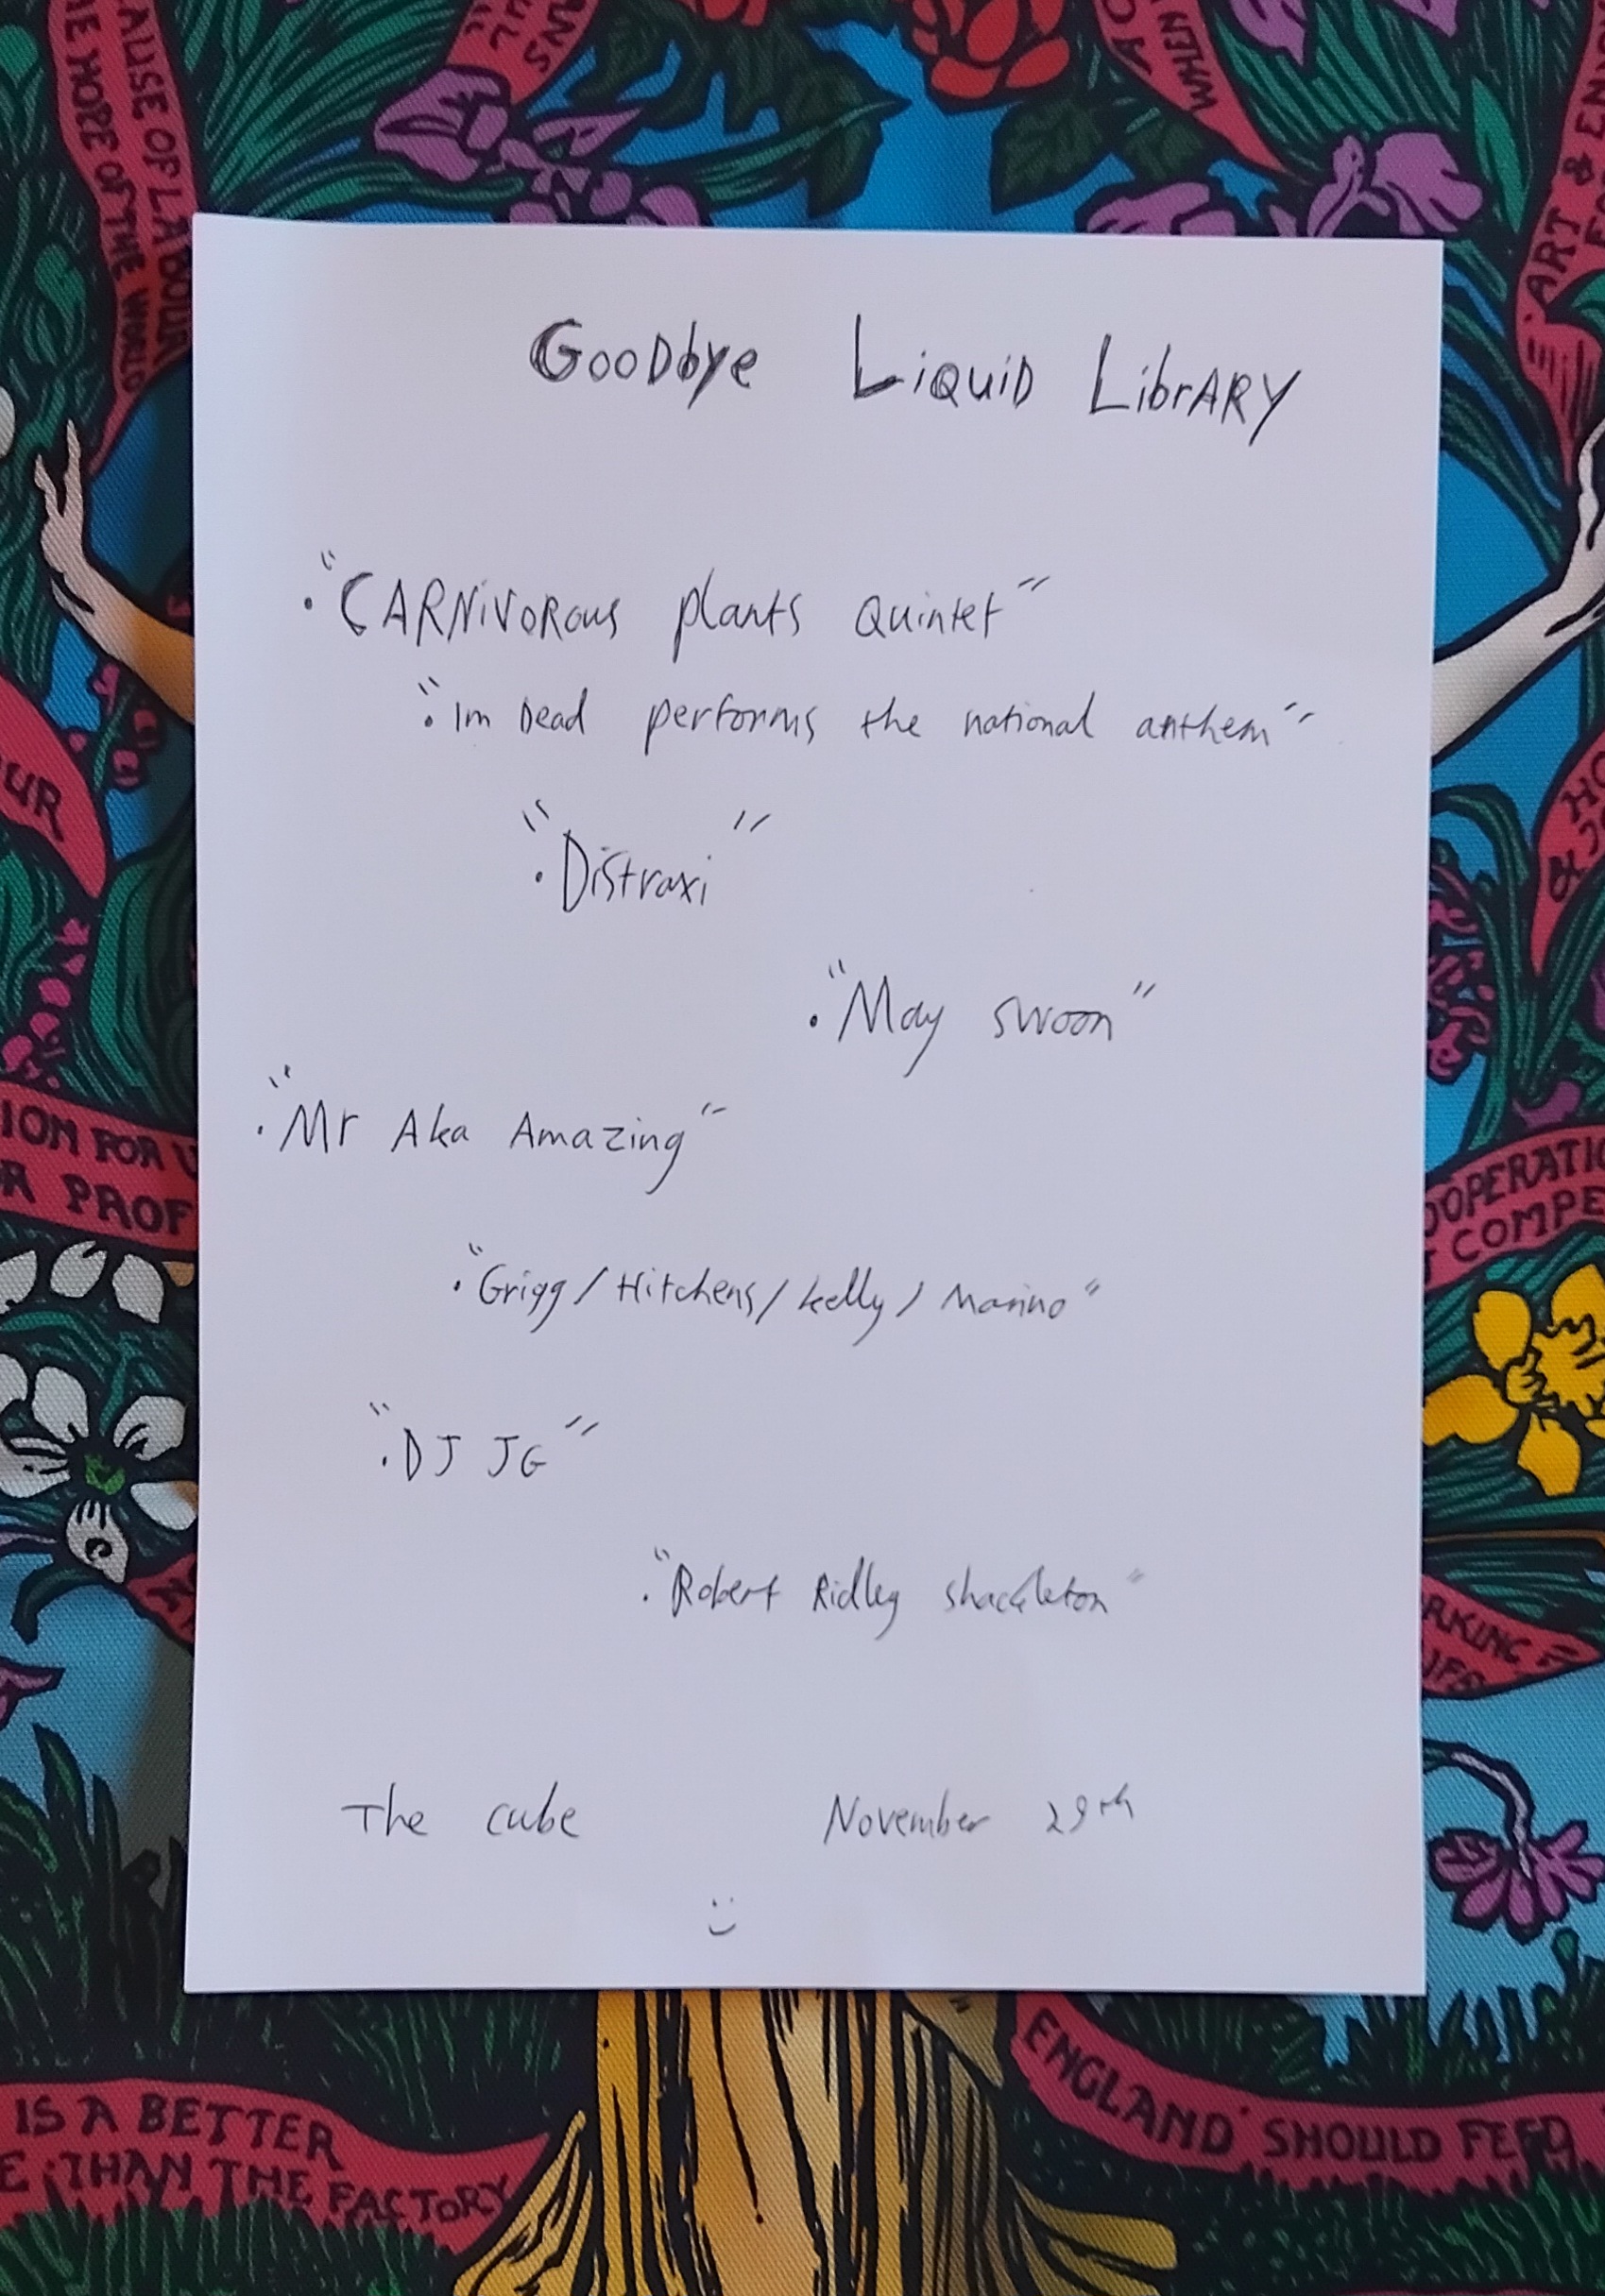 GooDbye LiQuiD LibrARY
• "CARNiVoRous plants Quintet"
• "Im Dead performs the national anthem"
• "Distraxi"
• "May swoon"
• "Mr Aka Amazing"
• "Grigg / Hitchens / kelly / Marino"
• "DJ JG"
• "Robert Ridley shackleton"
The cube November 29th
:)
ART &
WHEN
HOPE OF THE WORLD
OF LABOUR
ION FOR
PROF
OOPERATIO
COMPE
RKING
IS A BETTER
THAN THE FACTORY
ENGLAND SHOULD FEED